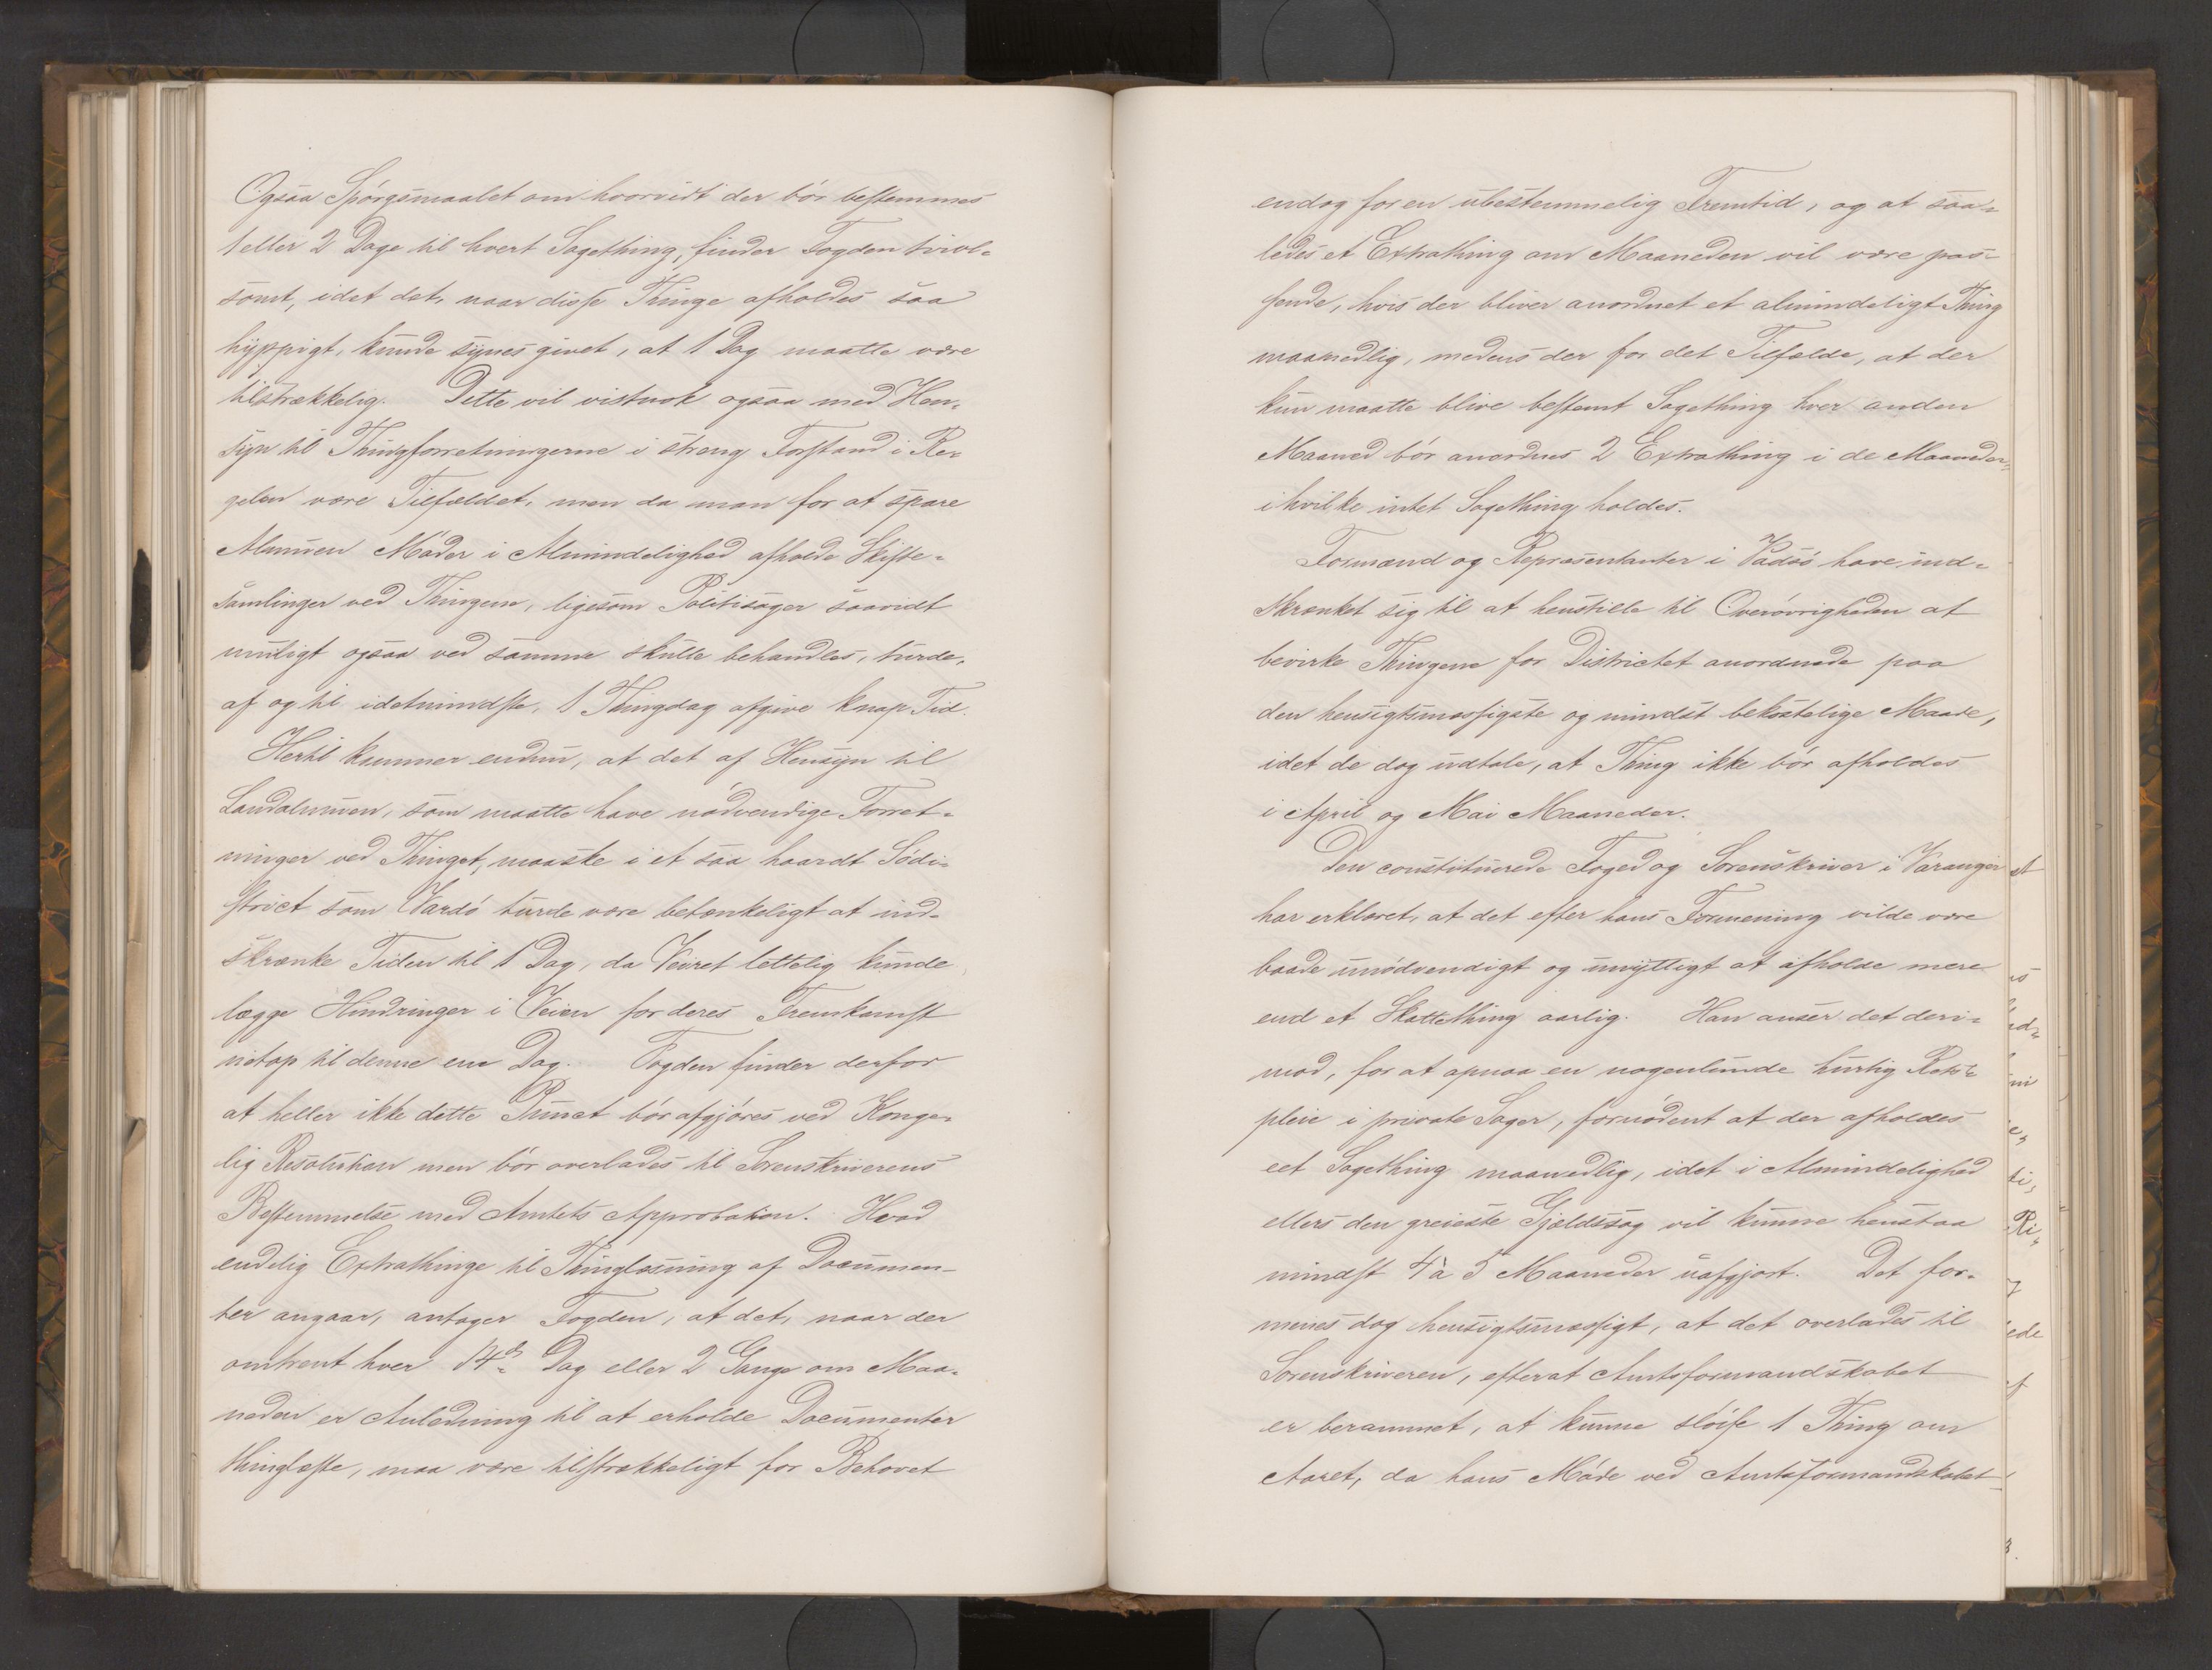 Ogsaa Spörgsmaalet om hvorvidt der bör bestemmes
1 eller 2 Dage til hvert Sagething, finder Fogden tvivl-
somt, idet det, naar disse Thinge afholdes saa
hyppigt, kunde synes givet, at 1 Dag maatte være
tilstrækkelig. Dette vil vistnok ogsaa med Hen-
syn til Thingforretningerne i streng Forstand i Re-
gelen være Tilfældet, men da man for at spare
Almuen Möder i Almindelighed afholde Skifte-
samlinger ved Thingene, ligesom Politisager saavidt
muligt ogsaa ved samme skulle behandles, turde,
af og til idetmindste, 1 Thingdag afgive knap Tid.
Hertil kommer endnu, at det af Hensyn til
Landalmuen, som maatte have nödvendige Forret-
ninger ved Thinget, maaske i et saa haardt Södi-
strict som Vardö turde være betænkeligt at ind-
skrænke Tiden til 1 Dag, da Veiret lettelig kunde
lægge Hindringer i Veien for deres Fremkomst
netop til denne ene Dag. Fogden finder derfor
at heller ikke dette Punct bör afgjöres ved Konge-
lig Resolution men bör overlades til Sorenskriverens
Bestemmelse med Amtets Approbation. Hvad
endelig Extrathinge til Thinglæsning af Documen-
ter angaar, antager Fogden, at det, naar der
omtrent hver 14d Dag eller 2 Gange om Maa-
neden er Anledning til at erholde Documenter
thinglæste, maa være tilstrækkeligt for Behovet
endog for en ubestemmelig Fremtid, og at saa-
ledes et Extrathing om Maaneden vil være pas-
sende, hvis der bliver anordnet et almindeligt Thing
maanedlig, medens der for det Tilfælde, at der
kun maatte blive bestemt Sagething hver anden
Maaned bör anordnes 2 Extrathing i de Maaneder,
i hvilke intet Sagething holdes.
Formænd og Repræsentanter i Vadsö have ind-
skrænket sig til at henstille til Overövrigheden at
bevirke Thingene for Districtet anordnede paa
den hensigtsmæssigste og mindst bekostelige Maade,
idet de dog udtale, at Thing ikke bör afholdes
i April og Mai Maaneder.
Den constituerede Foged og Sorenskriver i Varanger
har erklæret, at det efter hans Formening vilde være
baade unödvendigt og unyttigt at afholde mere
end et Skattething aarlig. Han anser det deri-
mod, for at opnaa en nogenlunde hurtig Rets-
pleie i private Sager, fornödent at der afholdes
eet Sagething maanedlig, idet i Almindelighed
ellers den greieste Gjældssag vil kunne henstaa
mindst 4 à 5 Maaneder uafgjort. Det for-
menes dog hensigtsmæssigt, at det overlades til
Sorenskriveren, efterat Amtsformandskabet
er berammet, at kunne slöife 1 Thing om
Aaret, da hans Möde ved Amtsformandskabet